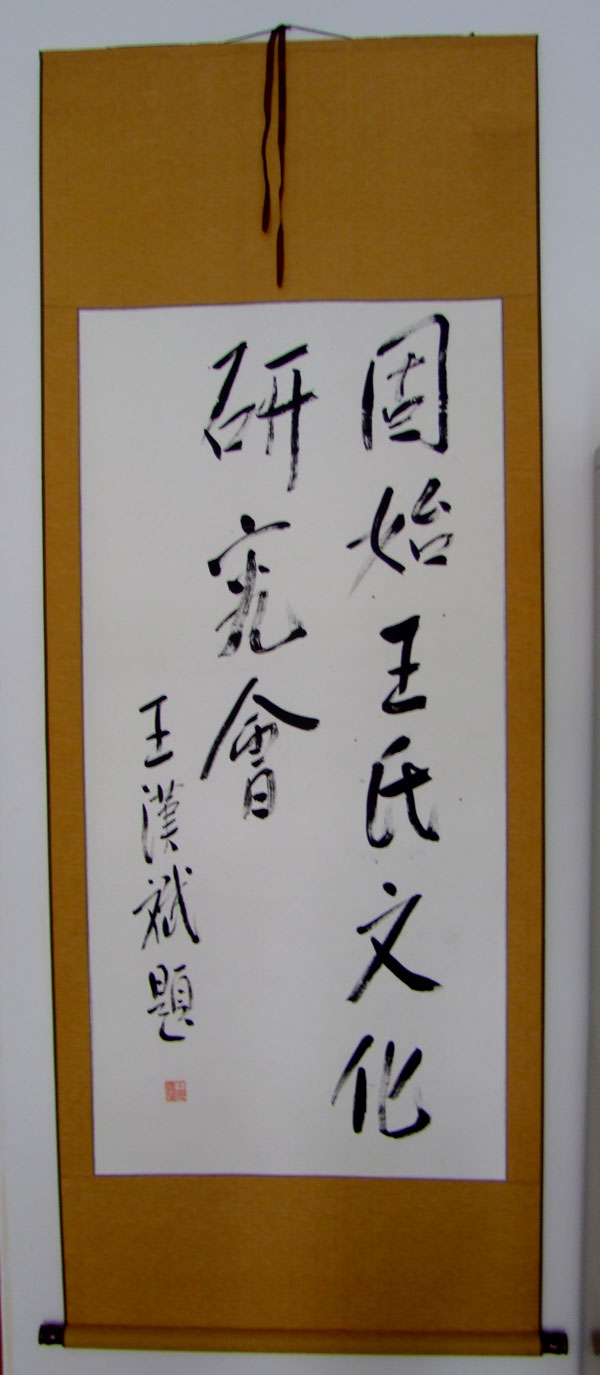 固始王氏文化
研究會
王漢斌題